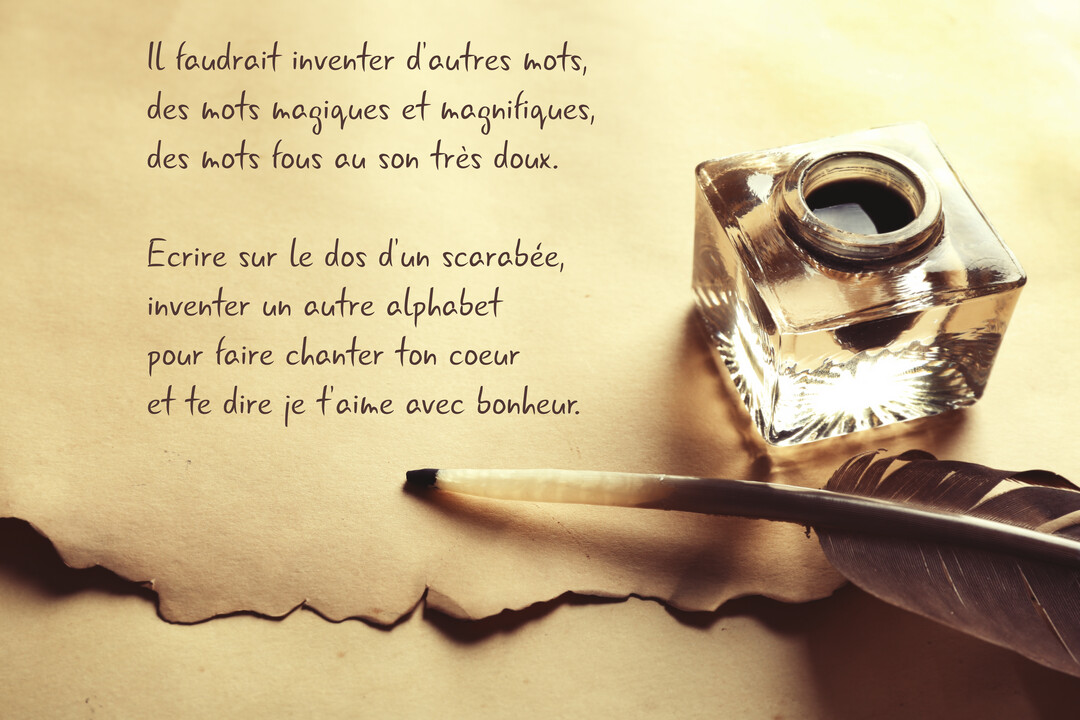 Il faudrait inventer d'autres mots,
des mots magiques et magnifiques,
des mots fous au son très doux.
Ecrire sur le dos d'un scarabée,
inventer un autre alphabet
pour faire chanter ton coeur
et te dire je t'aime avec bonheur.